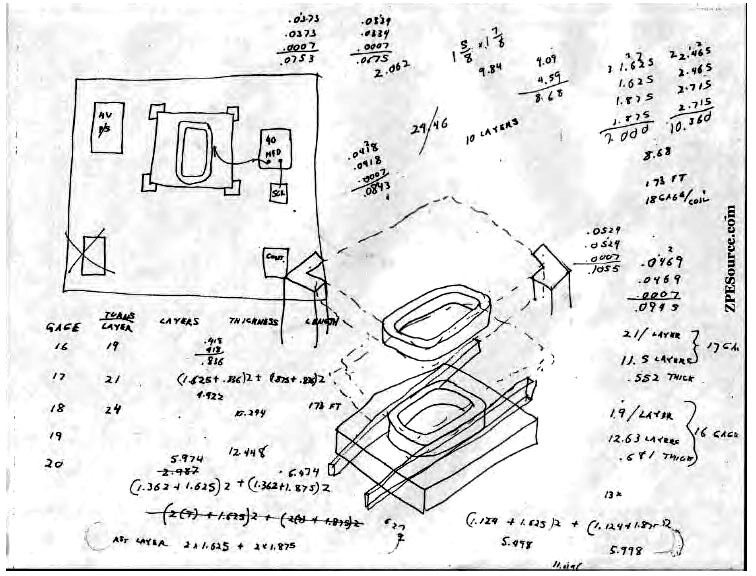 .0373
.0373
.0007
.0753
.0334
.0334
.0007
.0675
2.062
1 5/8 x 1 7/8
9.84
4.09
4.59
8.68
1.625
1.625
1.875
1.875
2.000
2.465
2.465
2.715
2.715
10.360
29.46
10 LAYERS
8.68
173 FT
18 GAGE/COIL
HV
P/S
40
MFD
SCR
CONT.
.0418
.0418
.0007
.0843
.0529
.0529
.0007
.1055
.0469
.0469
.0007
.0945
ZPESource.com
GAGE TURNS/LAYER LAYERS THICKNESS LENGTH
16 19
.418
.418
.836
17 21 (1.625+.836)2 + (1.875+.836)2
4.922
18 24 10.294 173 FT
19
20
5.974 12.448 6.474
2.987
(1.362+1.625)2 + (1.362+1.875)2
AST LAYER 2x1.625 + 2x1.875
21/LAYER
11.5 LAYERS
.552 THICK
17 GA
19/LAYER
12.63 LAYERS
.681 THICK
16 GAGE
13x
(1.124+1.625)2 + (1.124+1.875)2
5.498 5.998